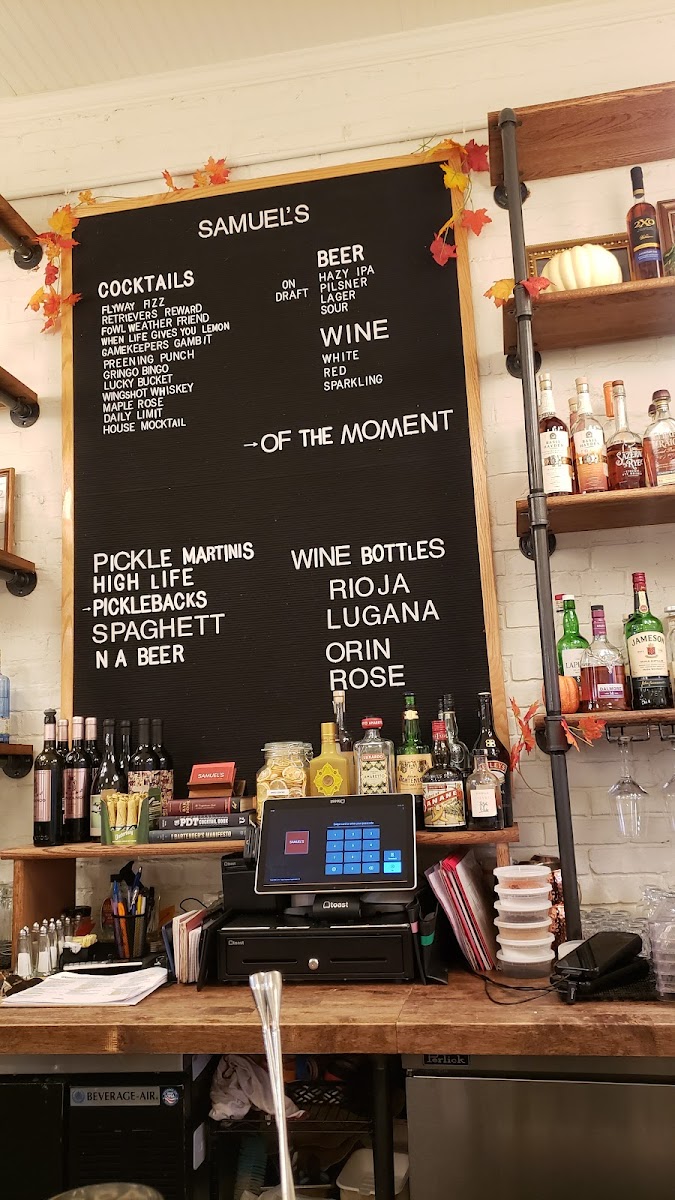 SAMUEL'S
COCKTAILS
FLYWAY FIZZ
RETRIEVERS REWARD
FOWL WEATHER FRIEND
WHEN LIFE GIVES YOU LEMON
GAMEKEEPERS GAMBIT
PREENING PUNCH
GRINGO BINGO
LUCKY BUCKET
WINGSHOT WHISKEY
MAPLE ROSE
DAILY LIMIT
HOUSE MOCKTAIL
BEER
ON DRAFT
HAZY IPA
PILSNER
LAGER
SOUR
WINE
WHITE
RED
SPARKLING
→OF THE MOMENT
PICKLE MARTINIS
HIGH LIFE
→PICKLEBACKS
SPAGHETT
N A BEER
WINE BOTTLES
RIOJA
LUGANA
ORIN
ROSE
SAZERAC
RYE
JAMESON
DALMORE
SAMUEL'S
PDT COCKTAIL BOOK
BARTENDER'S MANIFESTO
SAMUEL'S
toast
toast
BEVERAGE-AIR
Perlick